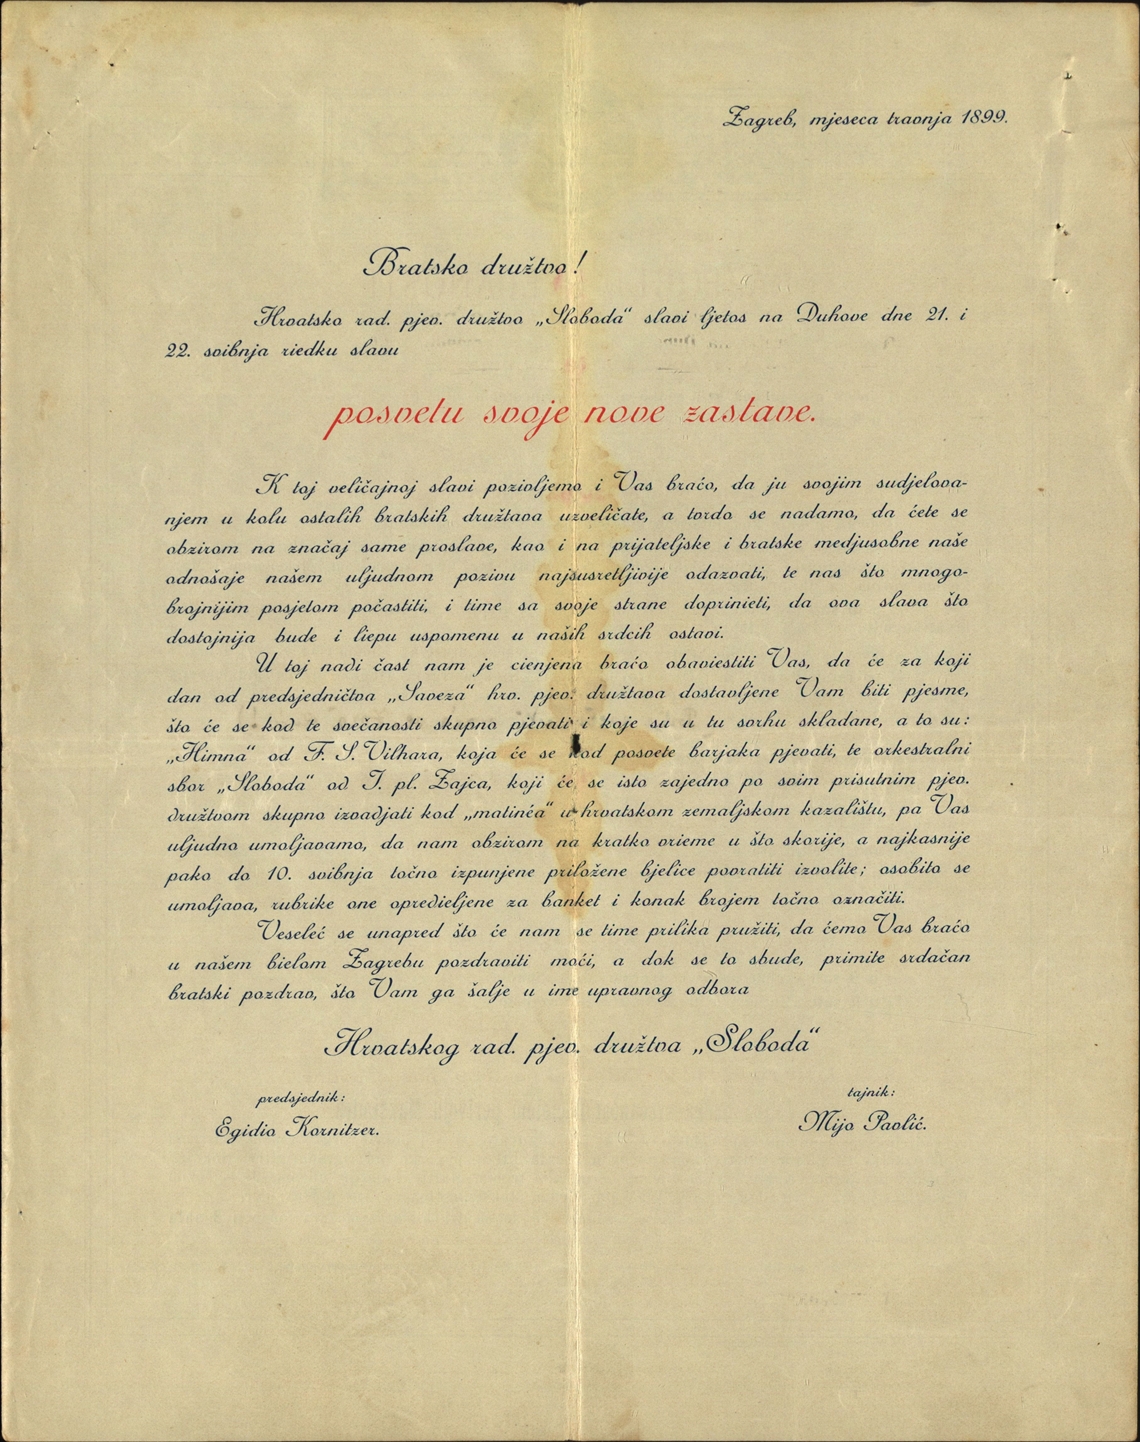 Zagreb, mjeseca travnja 1899.
Bratsko družtvo!
Hrvatsko rad. pjev. družtvo „Sloboda“ slavi ljetos na Duhove dne 21. i
22. svibnja riedku slavu
posvetu svoje nove zastave.
K toj veličajnoj slavi pozivljemo i Vas braćo, da ju svojim sudjelova-
njem u kolu ostalih bratskih družtava uzveličate, a tvrdo se nadamo, da ćete se
obzirom na značaj same proslave, kao i na prijateljske i bratske medjusobne naše
odnošaje našem uljudnom pozivu najsusretljivije odazvati, te nas što mnogo-
brojnijim posjetom počastiti, i time sa svoje strane doprinieti, da ova slava što
dostojnija bude i liepu uspomenu u naših srdcih ostavi.
U toj nadi čast nam je cienjena braćo obaviestiti Vas, da će za koji
dan od predsjedničtva „Saveza“ hrv. pjev. družtava dostavljene Vam biti pjesme,
što će se kod te svečanosti skupno pjevati i koje su u tu svrhu skladane, a to su:
„Himna“ od F. S. Vilhara, koja će se kod posvete barjaka pjevati, te orkestralni
sbor „Sloboda“ od I. pl. Zajca, koji će se isto zajedno po svim prisutnim pjev.
družtvom skupno izvadjati kod „matinéa“ u hrvatskom zemaljskom kazalištu, pa Vas
uljudno umoljavamo, da nam obzirom na kratko vrieme u što skorije, a najkasnije
pako do 10. svibnja točno izpunjene priložene bjelice povratiti izvolite; osobito se
umoljava, rubrike one opredieljene za banket i konak brojem točno označiti.
Veseleć se unapred što će nam se time prilika pružiti, da ćemo Vas braćo
u našem bielom Zagrebu pozdraviti moći, a dok se to sbude, primite srdačan
bratski pozdrav, što Vam ga šalje u ime upravnog odbora
Hrvatskog rad. pjev. družtva „Sloboda“
predsjednik:
tajnik:
Egidio Kornitzer.
Mijo Pavlić.